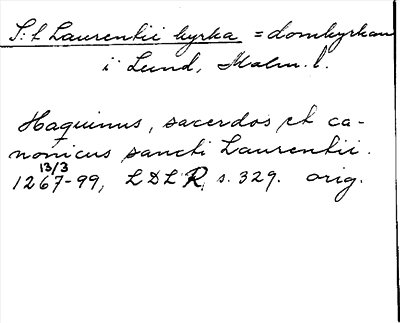 S:t Laurentii kyrka = domkyrkan
i Lund, Malm. l.
Haquinus, sacerdos et ca-
nonicus sancti Laurentii.
13/3
1267-99, LDLR, s. 329. orig.